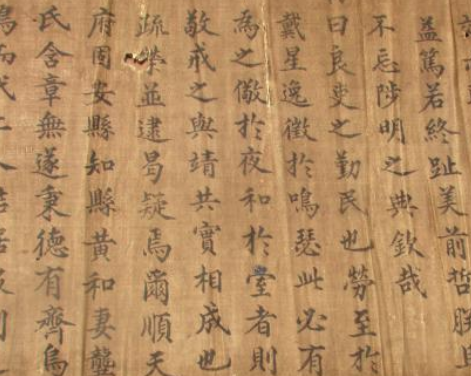 益篤若終趾美前哲勝
不忘陟明之典欽哉
曰良吏之勤民也勞至於
戴星逸徵於鳴瑟此必有
為之儆於夜和於堂者則
敬戒之與靖共實相成也
疏榮並逮曷疑焉爾順天
府固安縣知縣黃和妻龔
氏含章無遂秉德有齊烏